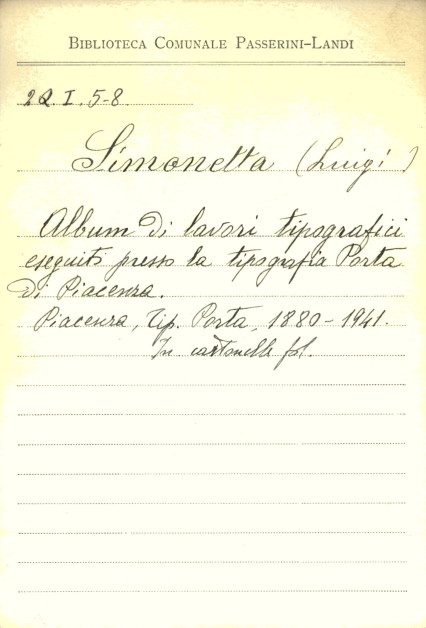 BIBLIOTECA COMUNALE PASSERINI-LANDI
2Q.I.5-8.
Simonetta (Luigi)
Album di lavori tipografici
eseguiti presso la tipografia Porta
di Piacenza.
Piacenza, Tip. Porta, 1880-1941.
In cartonelle fol.